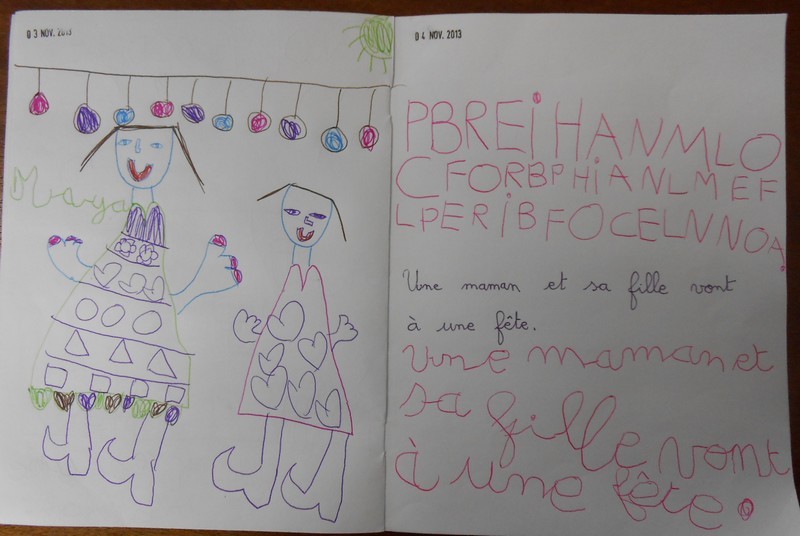 0 3 NOV. 2013
Maga
0 4 NOV. 2013
PBREiHANMLO
CFORBPHiANLMEF
LPERiBFOCELNNOA
Une maman et sa fille vont
à une fête.
une maman et
sa fille vont
à une fête.